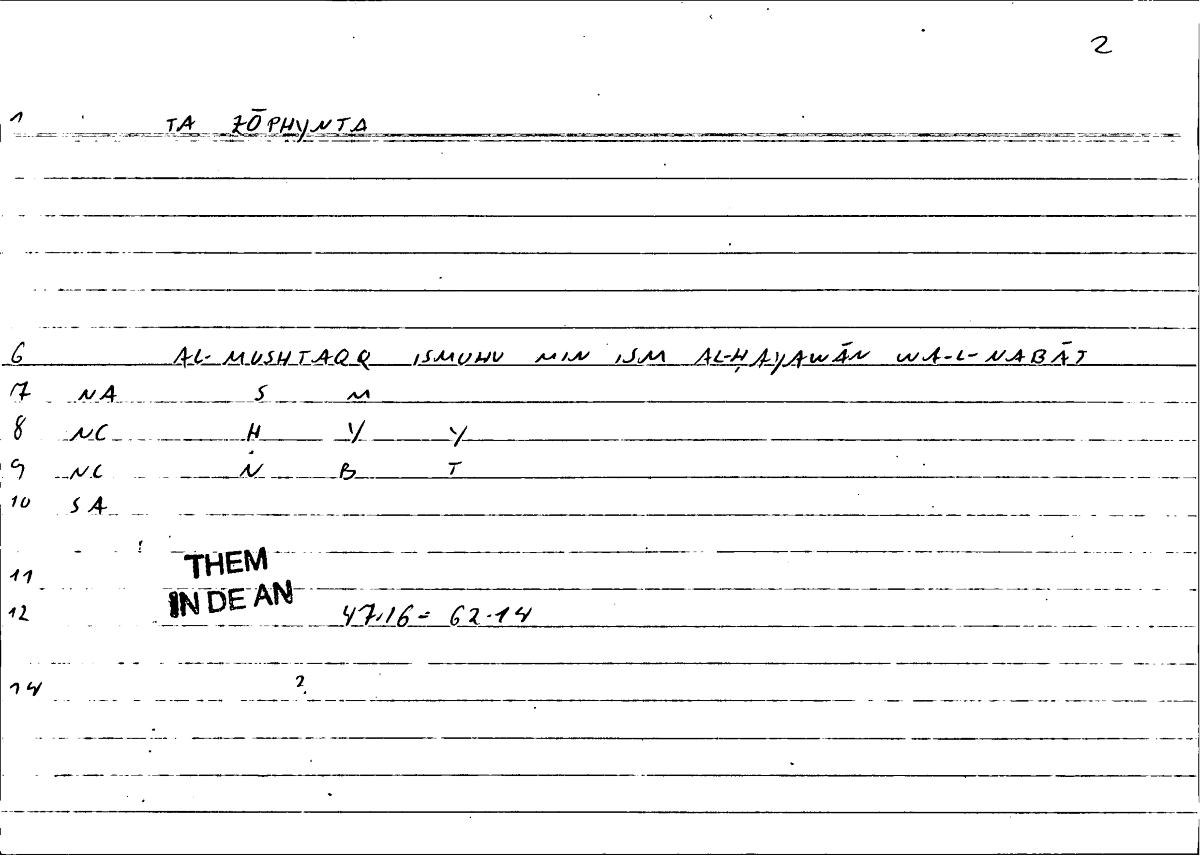 2
1 TA ZŌPHYNTA
6 AL-MUSHTAQQ ISMUHU MIN ISM AL-ḤAYAWĀN WA-L-NABĀT
7 NA S M
8 NC Ḥ Y Y
9 NC N B T
10 SA
11 THEM
12 IN DE AN 47.16 = 62.14
14 ?